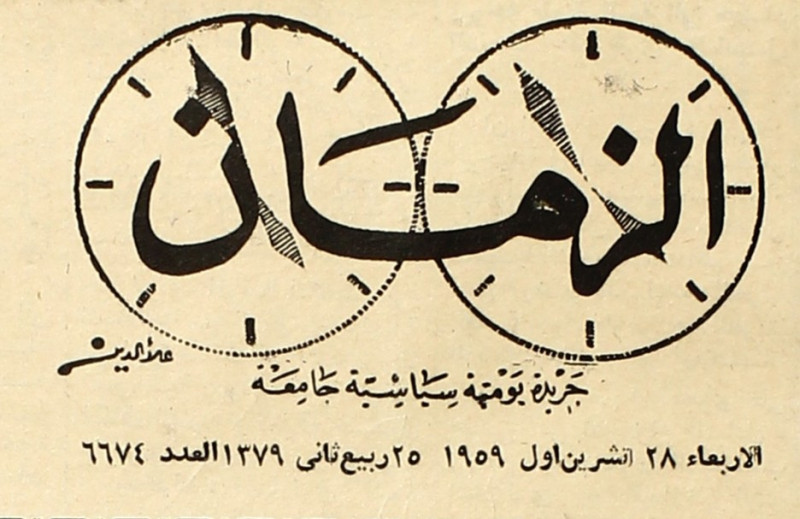 الزمان
علاء الدين
جَريدة يَوميّة سِيَاسِيّة جَامِعَة
الاربعاء ٢٨ تشرين اول ١٩٥٩ ٢٥ ربيع ثانى ١٣٧٩ العدد ٦٦٧٤